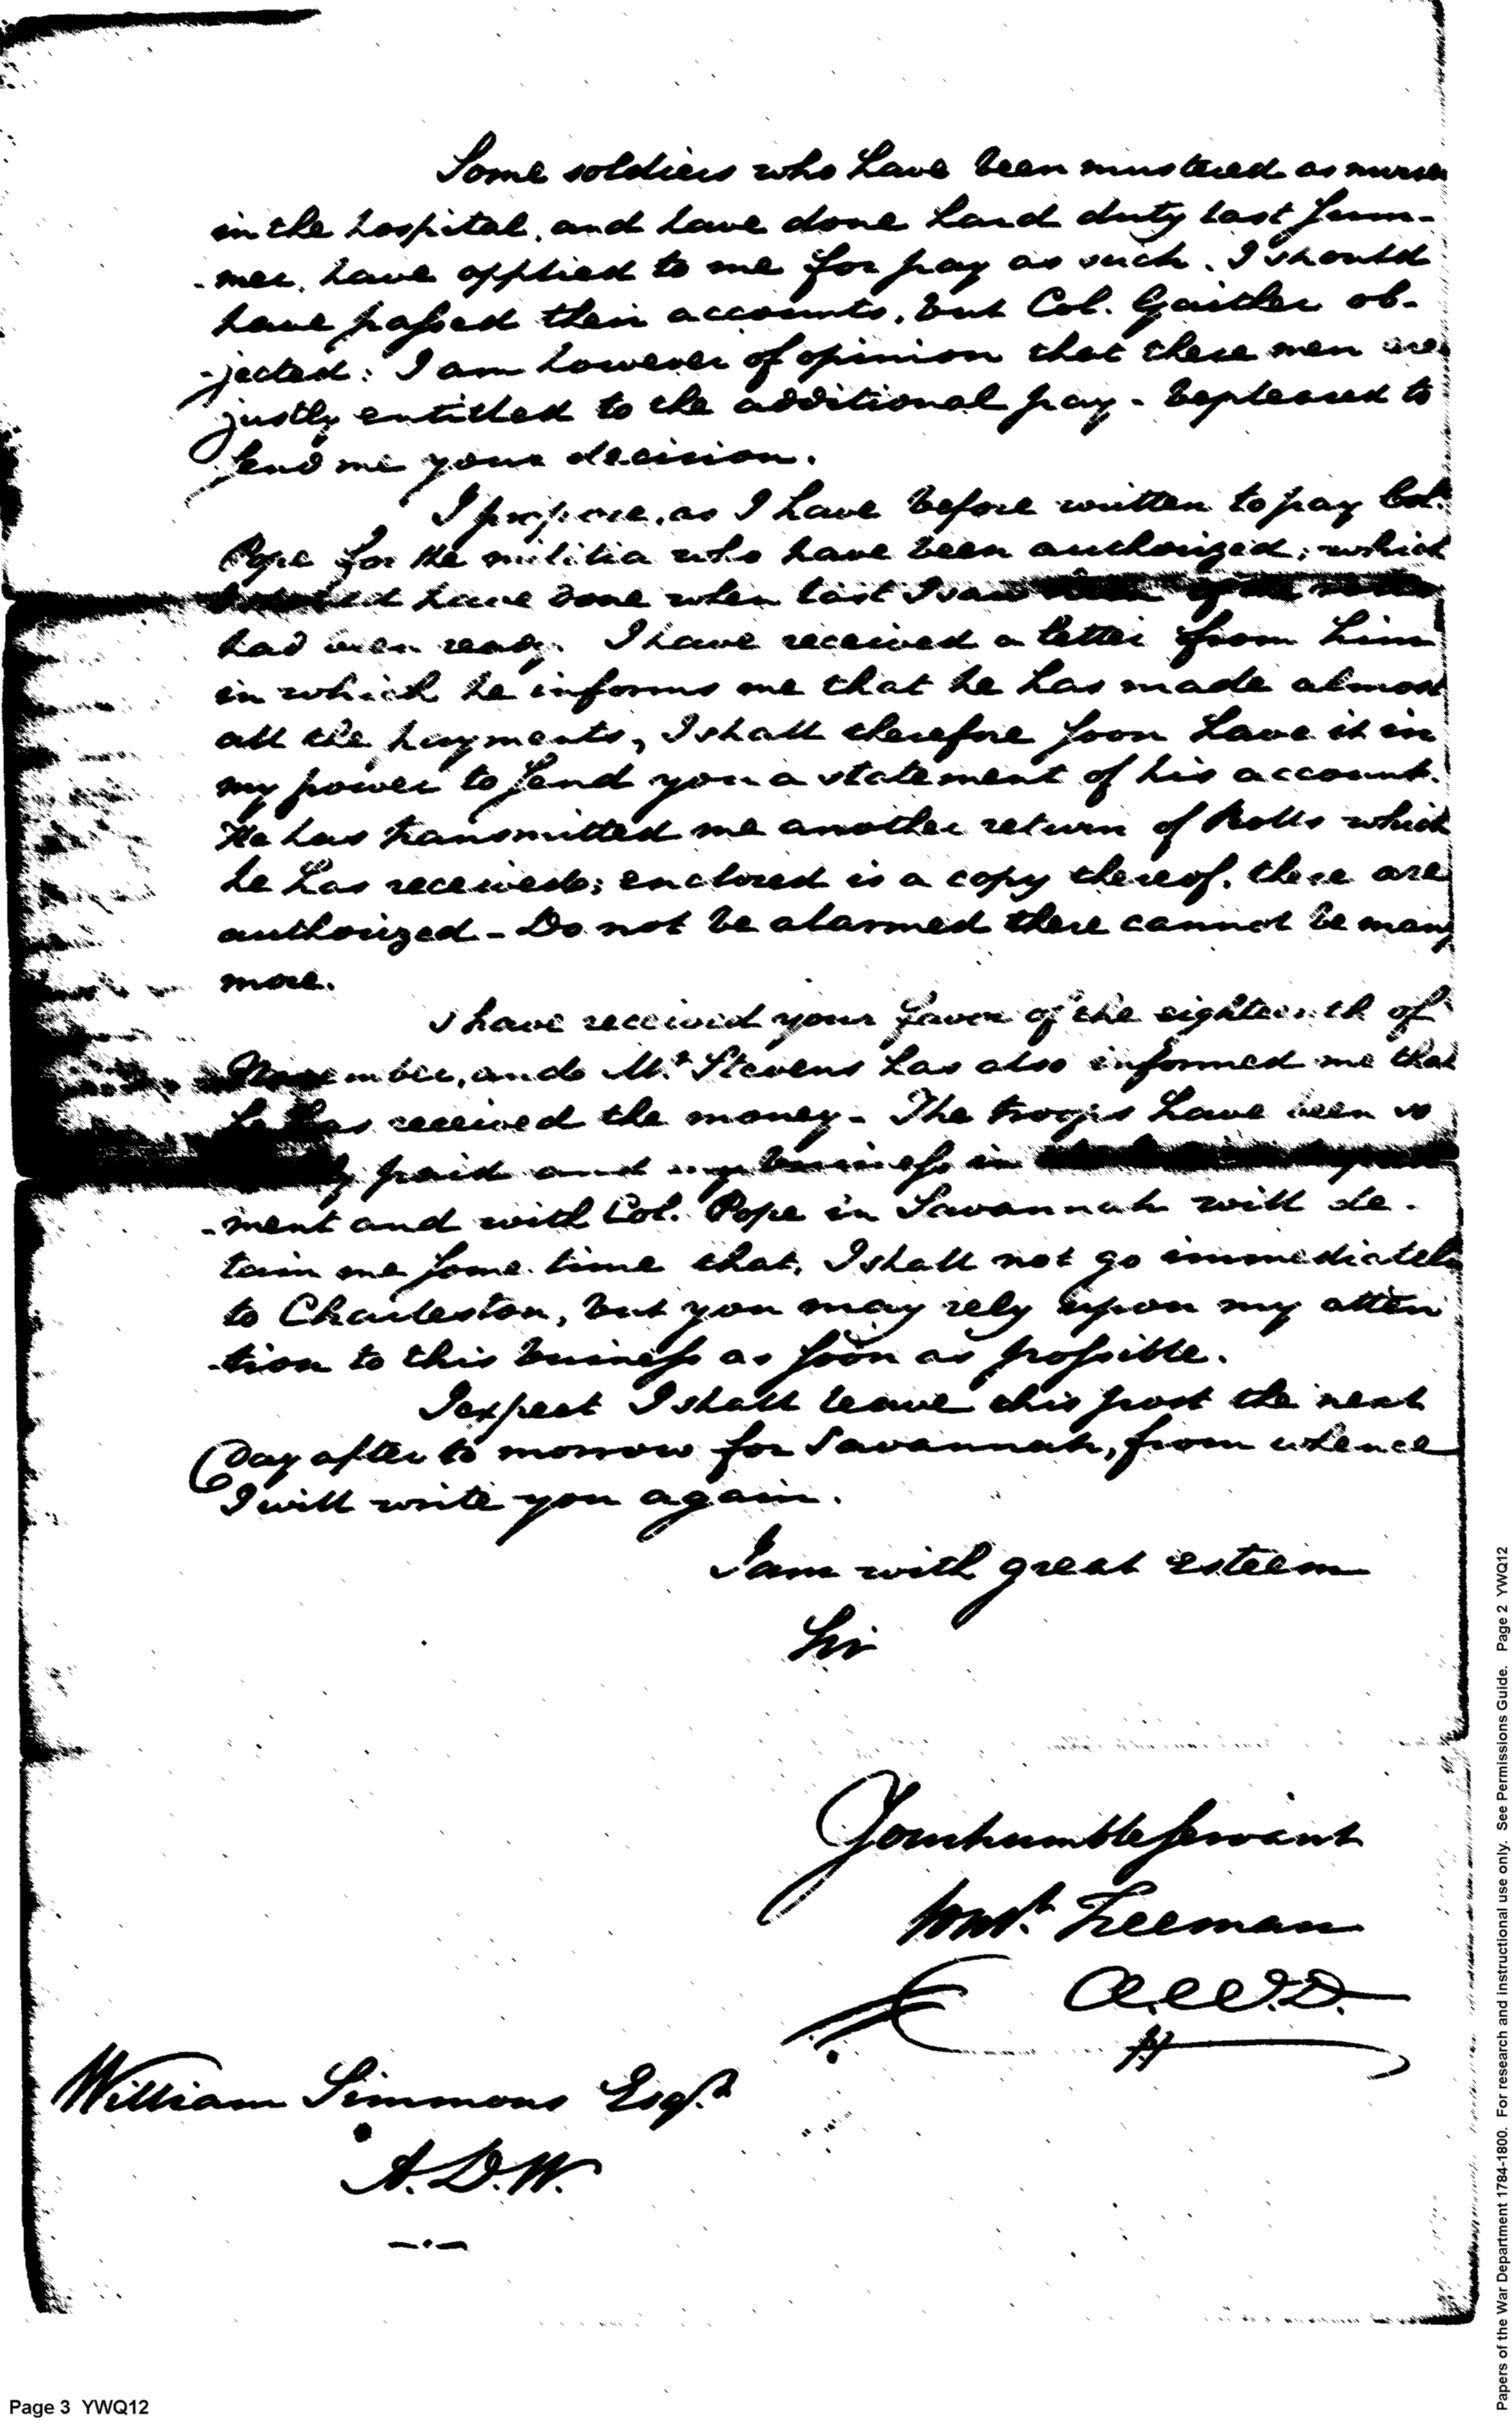 Some soldiers who have been mustered as nurses
in the hospital, and have done hard duty last sum-
-mer, have applied to me for pay as such. I should
have passed their accounts, but Col. Gaither ob-
-jected: I am however of opinion that these men are
justly entitled to the additional pay - be pleased to
send me your decision.
I propose, as I have before written to pay Col.
Pope for the militia who have been authorized; which
have done when last I saw
had been ready. I have received a letter from him
in which he informs me that he has made almost
all the payments, I shall therefore soon have it in
my power to send you a statement of his account.
He has transmitted me another return of Rolls which
he has received; enclosed is a copy thereof. these are
authorized - Do not be alarmed there cannot be many
more.
I have received your favor of the eighteenth of
November, and Mr. Stevens has also informed me that
he has received the money - The troops have been so
paid and my business in
-ment and with Col. Pope in Savannah will de-
tain me some time that, I shall not go immediately
to Charleston, but you may rely upon my atten
-tion to this business as soon as possible.
I expect I shall leave this post the next
Day after to morrow for Savannah, from whence
I will write you again.
I am with great esteem
Sir
Your humble servant
Const. Freeman
A.W.D.
William Simmons Esqr.
A.D.W.
Page 3 YWQ12
Papers of the War Department 1784-1800. For research and instructional use only. See Permissions Guide. Page 2 YWQ12